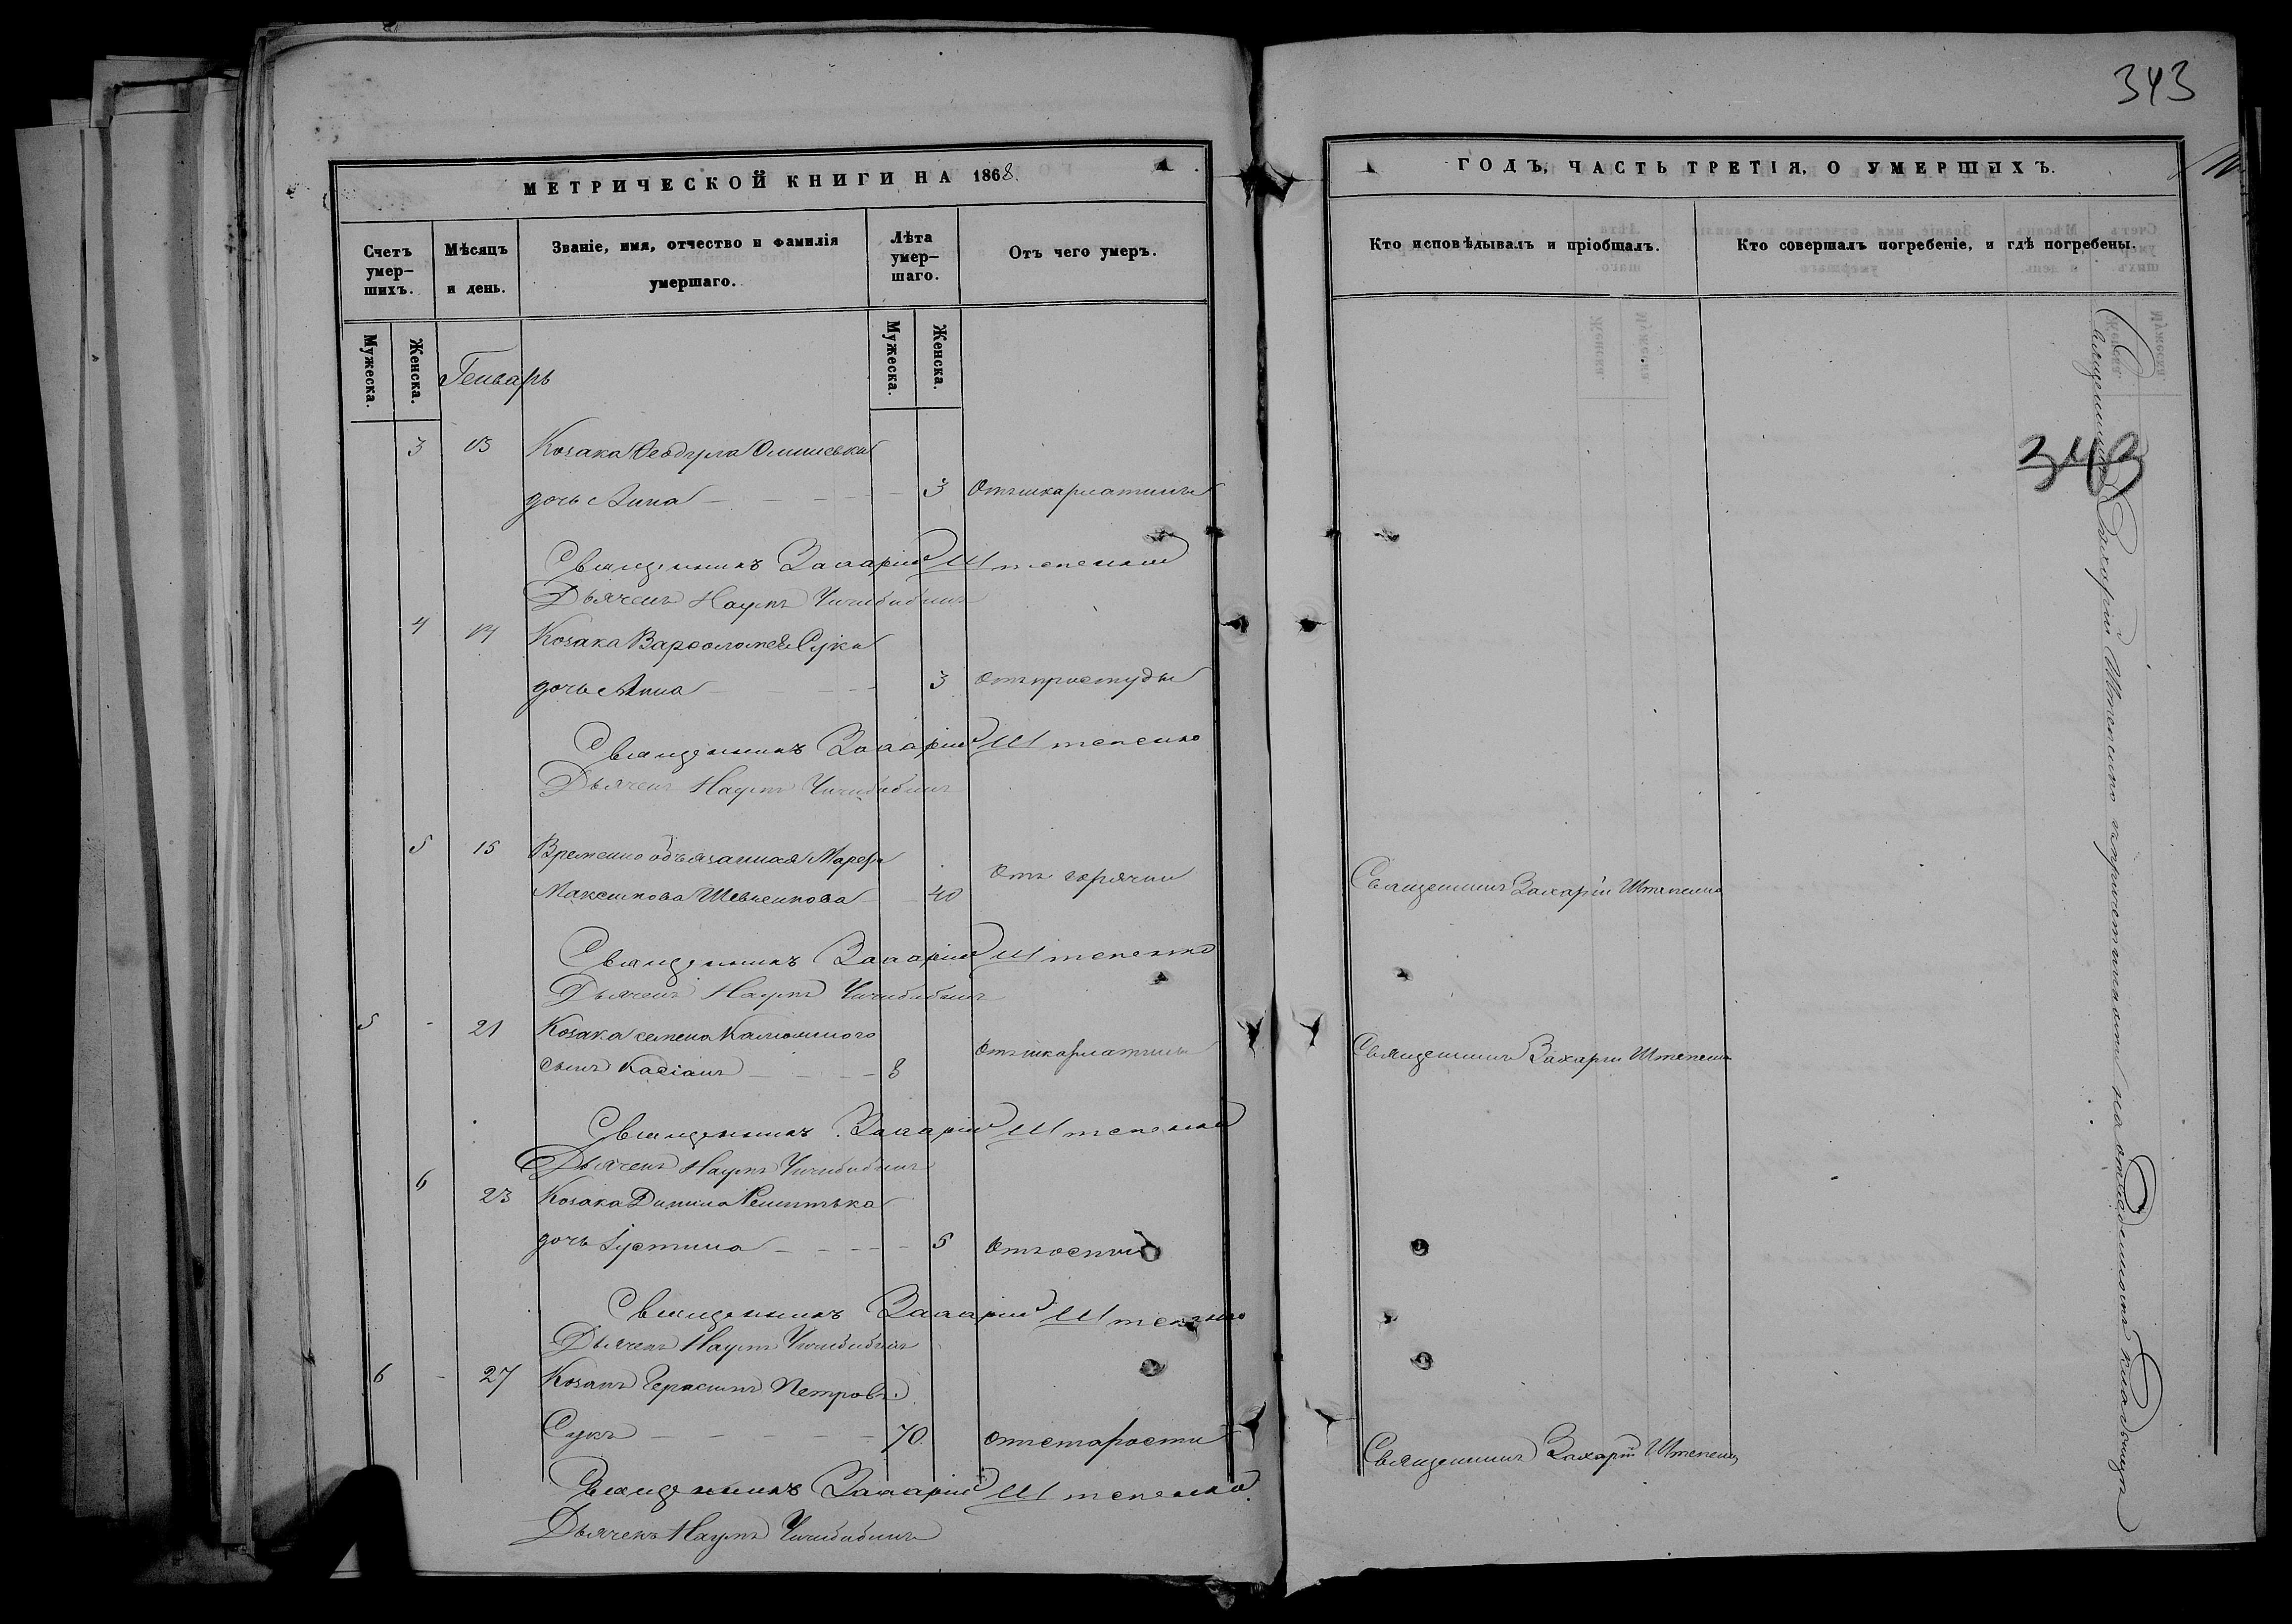 343
МЕТРИЧЕСКОЙ КНИГИ НА 1868.
Счетъ умер-шихъ.
Мѣсяцъ и день.
Званіе, имя, отчество и фамилія умершаго.
Лѣта умер-шаго.
Отъ чего умеръ.
Мужеска.
Женска.
Мужеска.
Женска.
Генварь
3 13 Козака Феодула
дочь Анна 3 Отъ шкарлатины
Священникъ Захарій Штепенко
Дьячекъ Наумъ
4 14 Козака Варфоломея Сука
дочь Анна 3 отъ простуды
Священникъ Захарій Штепенко
Дьячекъ Наумъ
5 15 Временно обязанная Марфа
Максимова Шевченкова 40 Отъ горячки
Священникъ Захарій Штепенко
Дьячекъ Наумъ
5 - 21 Козака Семена Калюжного
сынъ Касіанъ 8 Отъ шкарлатины
Священникъ Захарій Штепенко
Дьячекъ Наумъ
6 23 Козака Данила
дочь Іустина 5 Отъ оспы
Священникъ Захарій Штепенко
Дьячекъ Наумъ
6 - 27 Козакъ Герасимъ Петровъ
Сукъ 70 отъ старости
Священникъ Захарій Штепенко
Дьячекъ Наумъ
ГОДЪ, ЧАСТЬ ТРЕТІЯ, О УМЕРШИХЪ.
Кто исповѣдывалъ и пріобщалъ.
Кто совершалъ погребеніе, и гдѣ погребены.
343
Священникъ Захарій Штепенко
Священникъ Захарій Штепенко
Священникъ Захарій Штепенко
Священникъ Захарій Штепенко съ причетникомъ на отведенномъ кладбищѣ